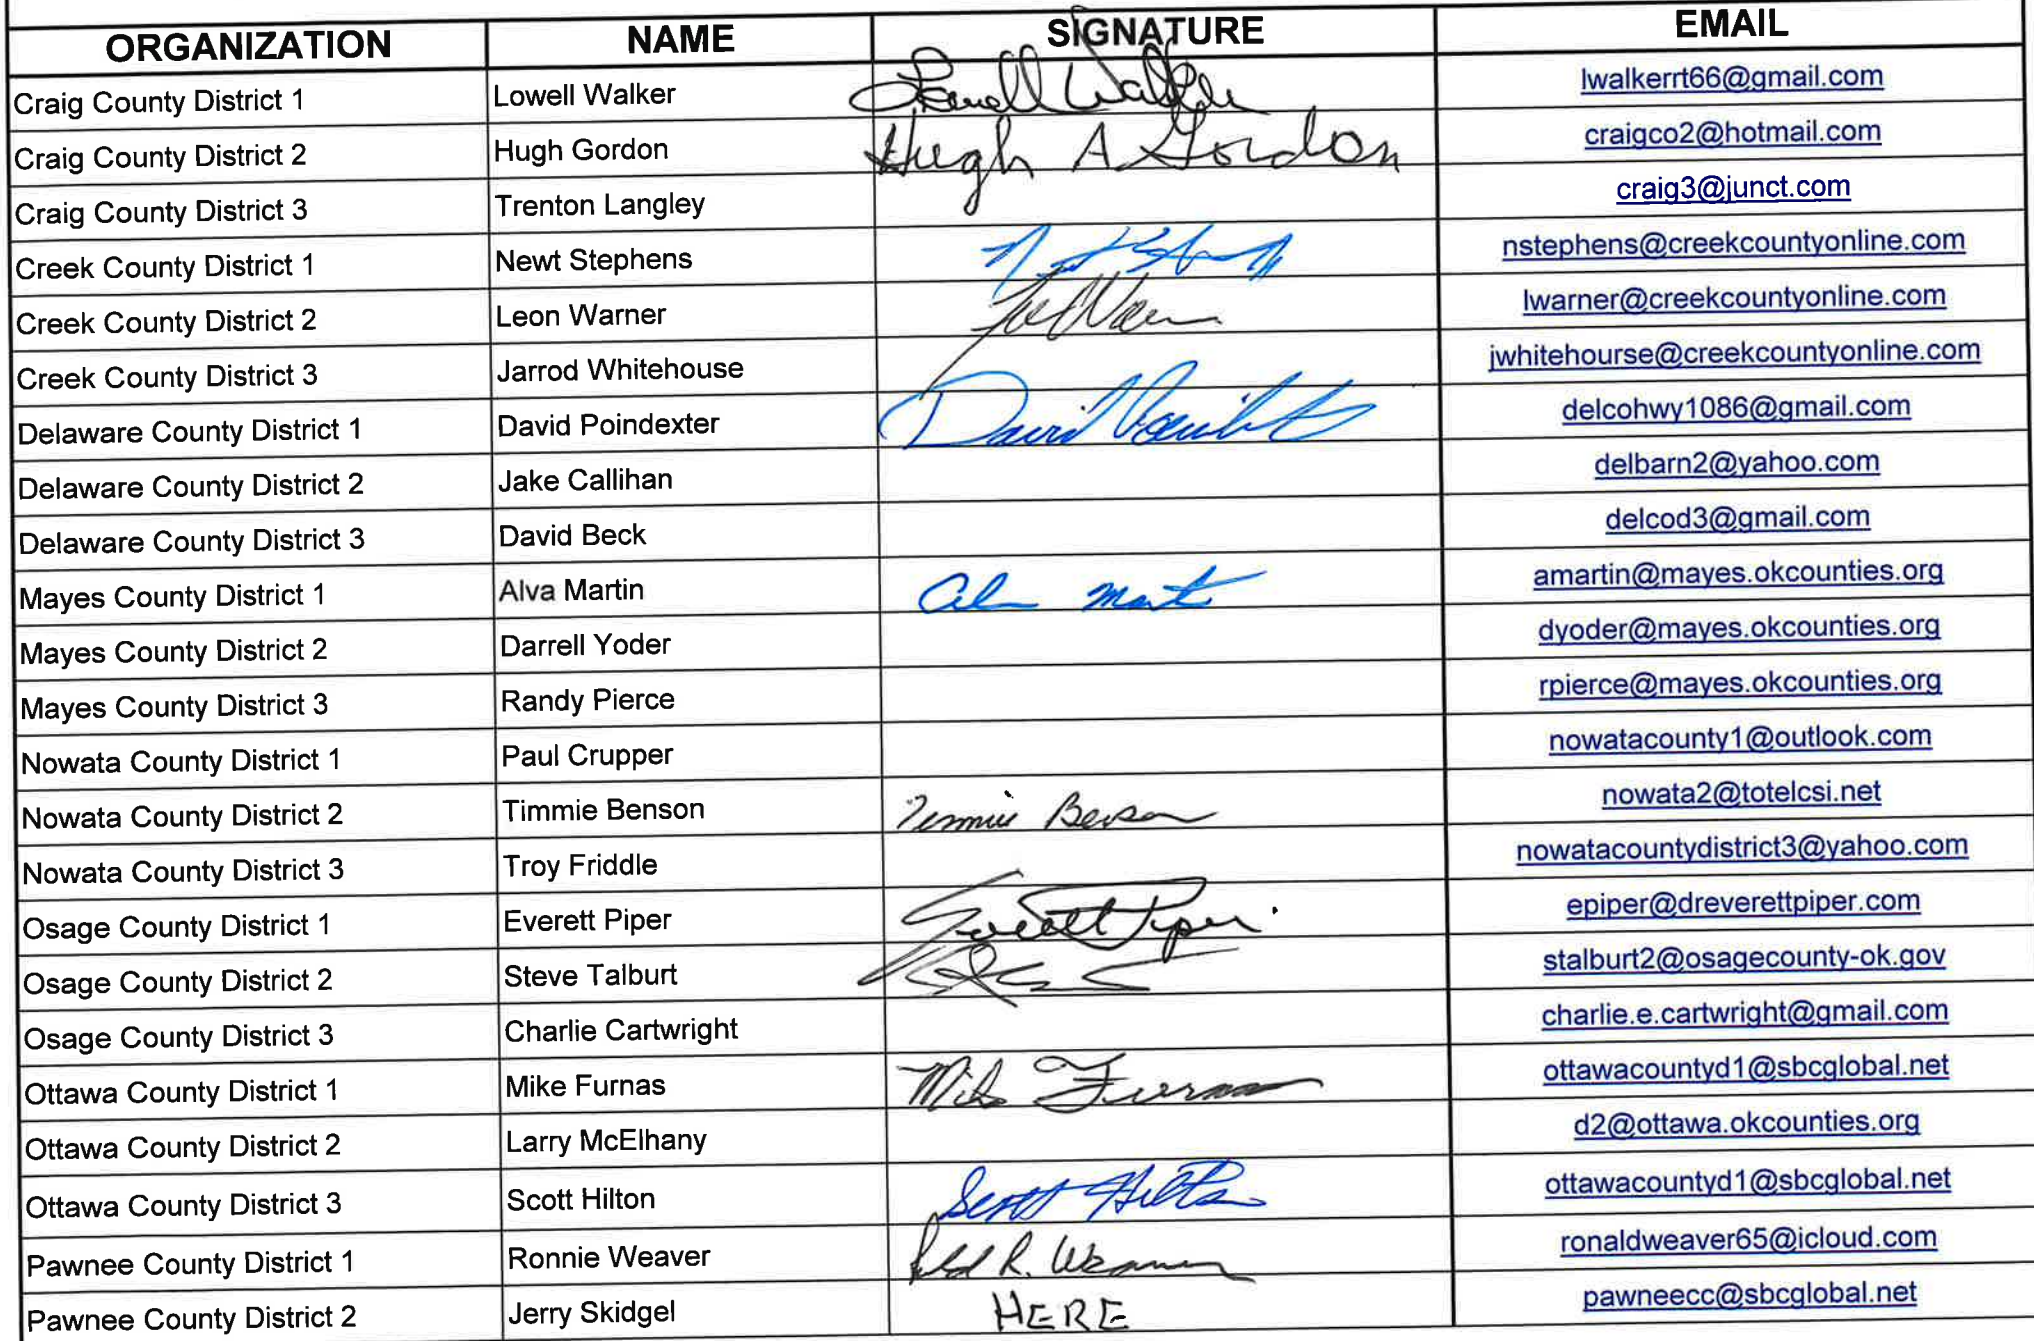 ORGANIZATION NAME SIGNATURE EMAIL
Craig County District 1 Lowell Walker Lowell Walker lwalkerrt66@gmail.com
Craig County District 2 Hugh Gordon Hugh A Gordon craigco2@hotmail.com
Craig County District 3 Trenton Langley craig3@junct.com
Creek County District 1 Newt Stephens nstephens@creekcountyonline.com
Creek County District 2 Leon Warner lwarner@creekcountyonline.com
Creek County District 3 Jarrod Whitehouse jwhitehourse@creekcountyonline.com
Delaware County District 1 David Poindexter David Poindexter delcohwy1086@gmail.com
Delaware County District 2 Jake Callihan delbarn2@yahoo.com
Delaware County District 3 David Beck delcod3@gmail.com
Mayes County District 1 Alva Martin Alva Martin amartin@mayes.okcounties.org
Mayes County District 2 Darrell Yoder dyoder@mayes.okcounties.org
Mayes County District 3 Randy Pierce rpierce@mayes.okcounties.org
Nowata County District 1 Paul Crupper nowatacounty1@outlook.com
Nowata County District 2 Timmie Benson Timmie Benson nowata2@totelcsi.net
Nowata County District 3 Troy Friddle nowatacountydistrict3@yahoo.com
Osage County District 1 Everett Piper Everett Piper epiper@dreverettpiper.com
Osage County District 2 Steve Talburt stalburt2@osagecounty-ok.gov
Osage County District 3 Charlie Cartwright charlie.e.cartwright@gmail.com
Ottawa County District 1 Mike Furnas Mike Furnas ottawacountyd1@sbcglobal.net
Ottawa County District 2 Larry McElhany d2@ottawa.okcounties.org
Ottawa County District 3 Scott Hilton Scott Hilton ottawacountyd1@sbcglobal.net
Pawnee County District 1 Ronnie Weaver R. Weaver ronaldweaver65@icloud.com
Pawnee County District 2 Jerry Skidgel HERE pawneecc@sbcglobal.net